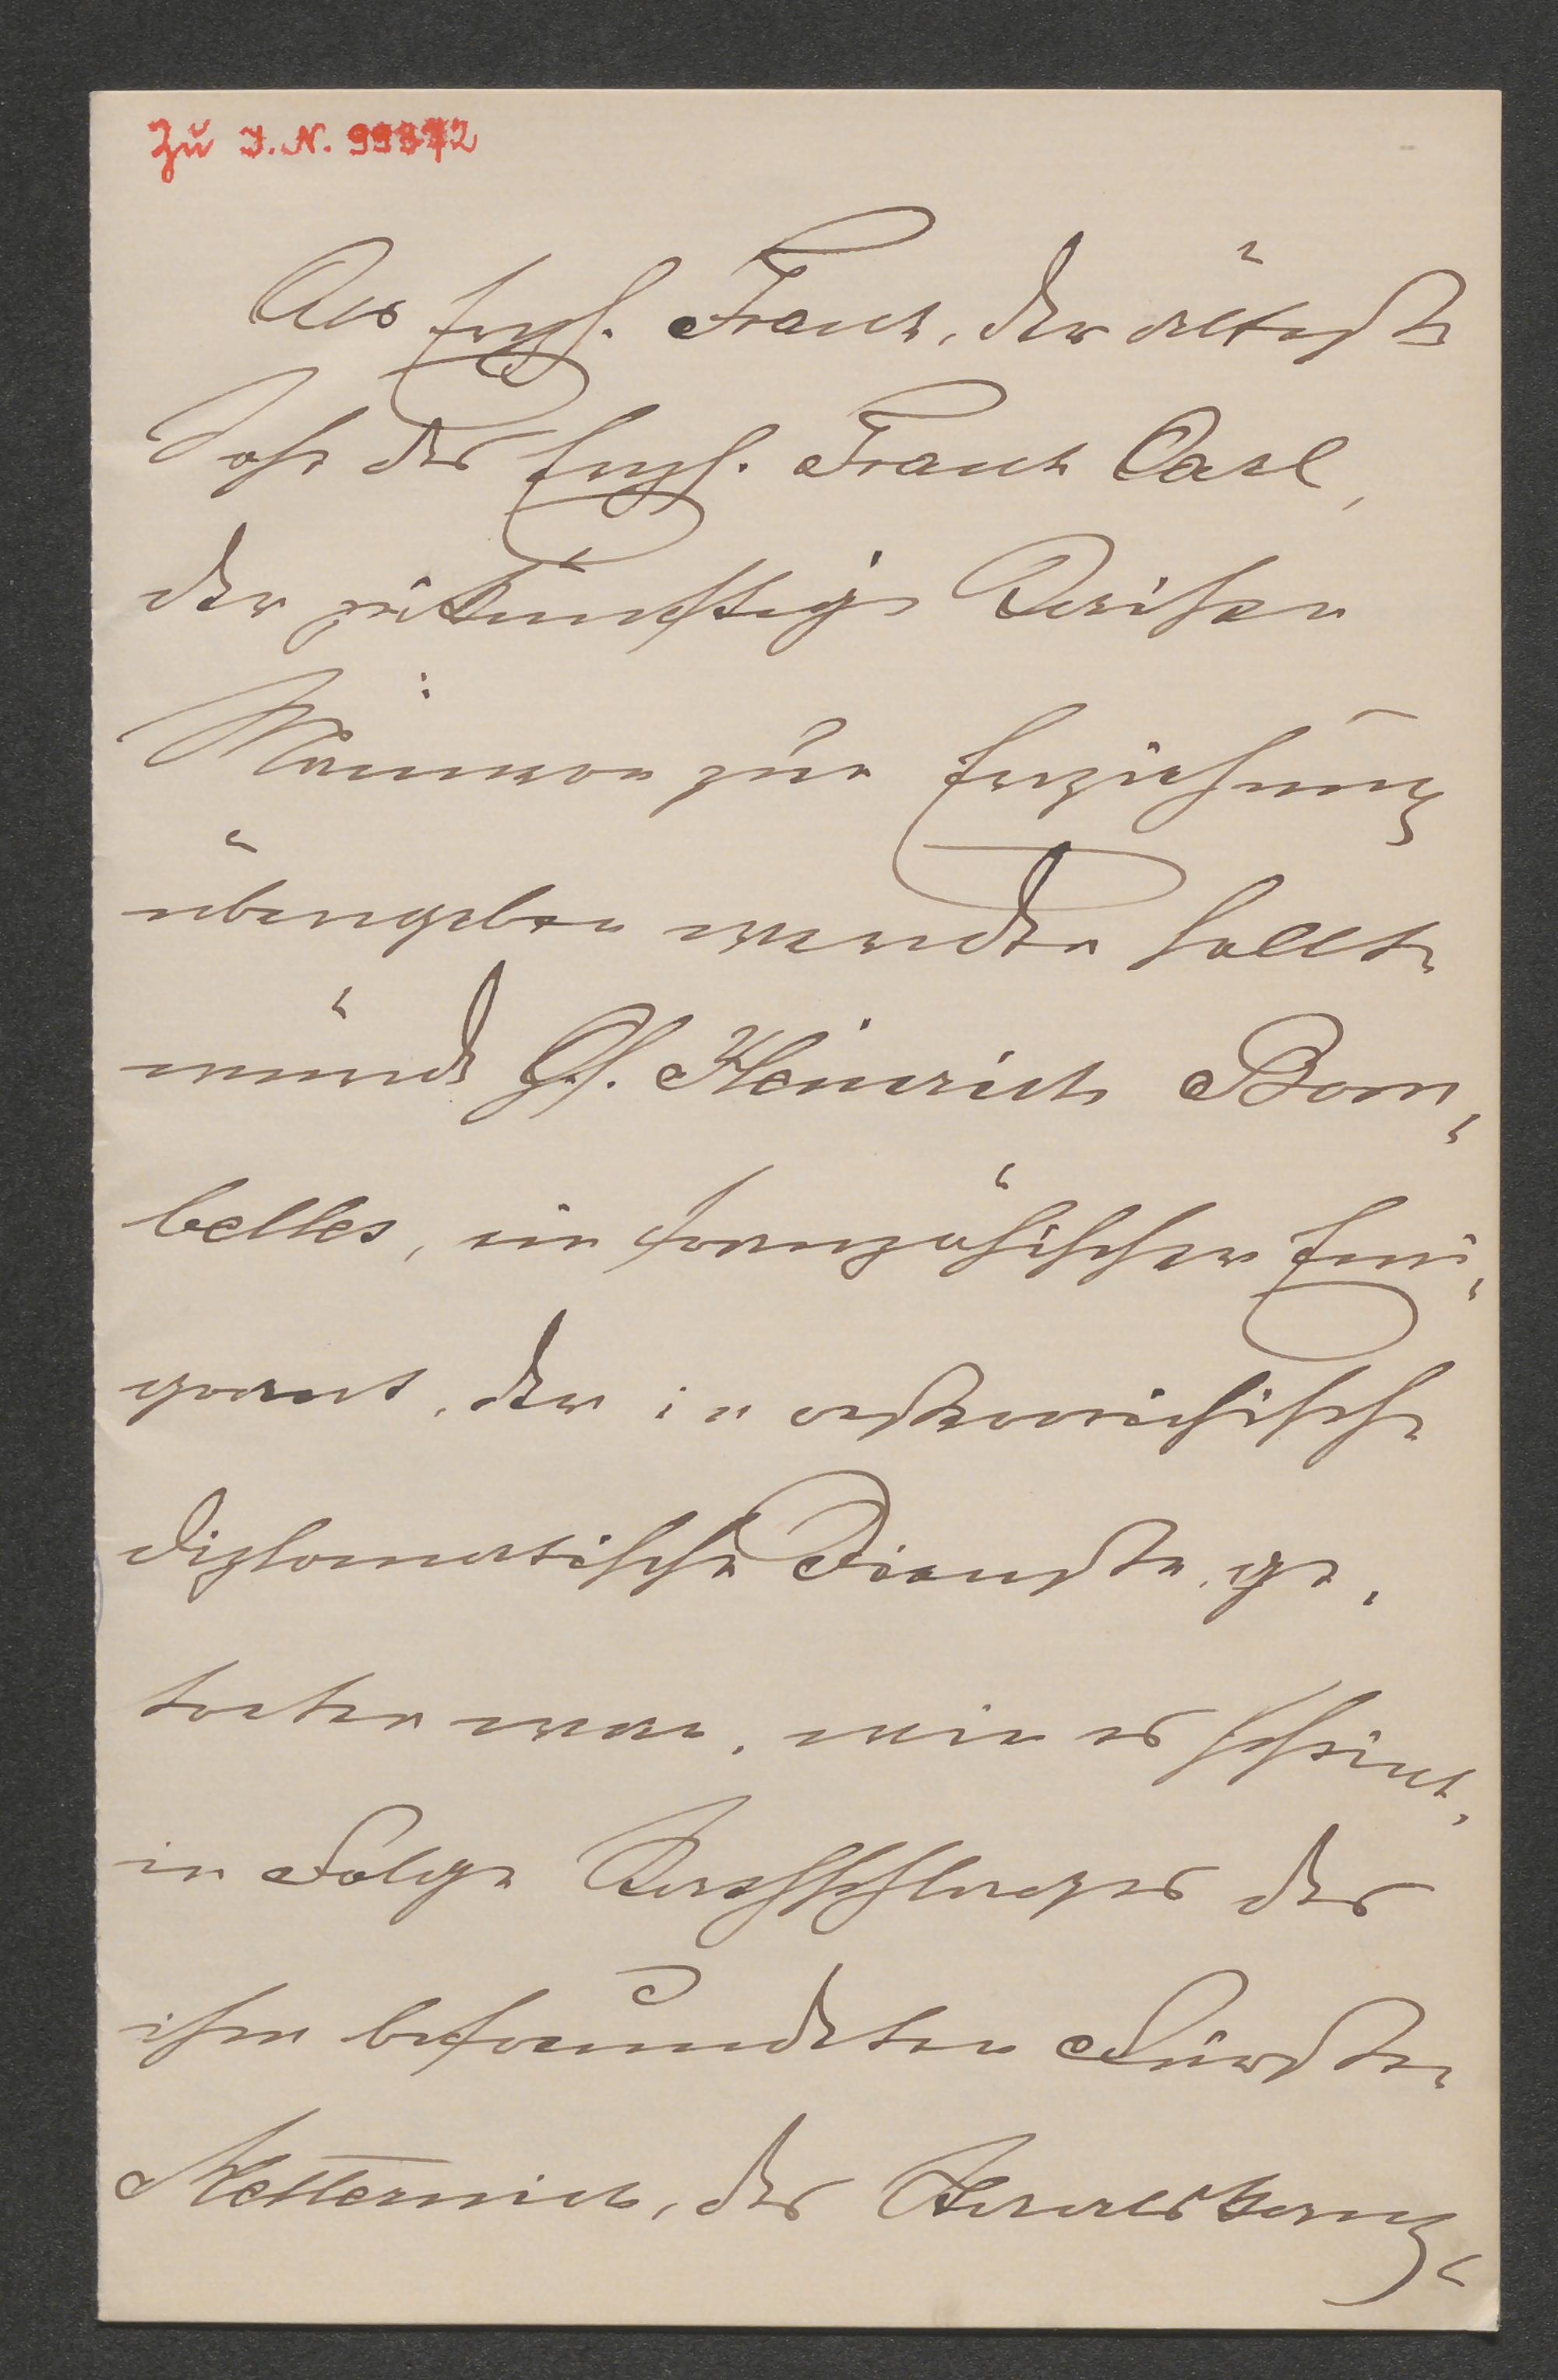 Zu I.N. 99372
Als Erzh. Franz, der älteste
Sohn des Erzh. Franz Carl,
der zukünftige Kaiser
Männern zur Erziehung
übergeben werden sollte
wurde Gf. Heinrich Bom-
belles, ein französischer Emi-
grant, der in oesterreichische
diplomatische Dienste ge-
treten war, wie es scheint,
in Folge Rathschlages des
ihm befreundeten Fürsten
Metternich, des Staatskanz-